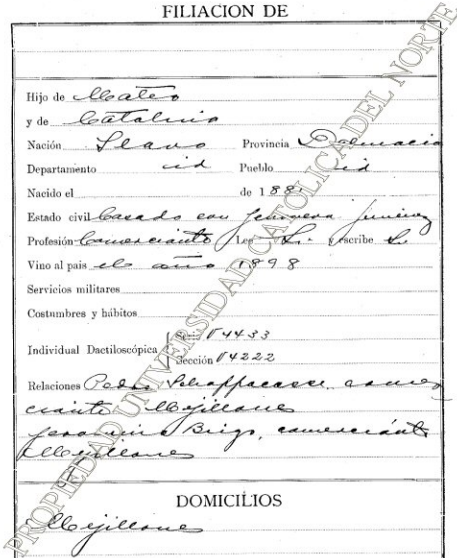 FILIACION DE
Hijo de Mateo
y de Catalina
Nación Slavo Provincia Dalmacia
Departamento id Pueblo id
Nacido el de 188
Estado civil Casado con Genoveva Jiménez
Profesión Comerciante Lee S. y escribe S.
Vino al pais el año 1898
Servicios militares
Costumbres y hábitos
Individual Dactiloscópica V4433
Sección V4222
Relaciones Pedro Schiappacasse, comer
ciante Mejillones
Jeronimo Brigo, comerciante
Mejillones
DOMICILIOS
Mejillones
PROPIEDAD UNIVERSIDAD CATOLICA DEL NORTE